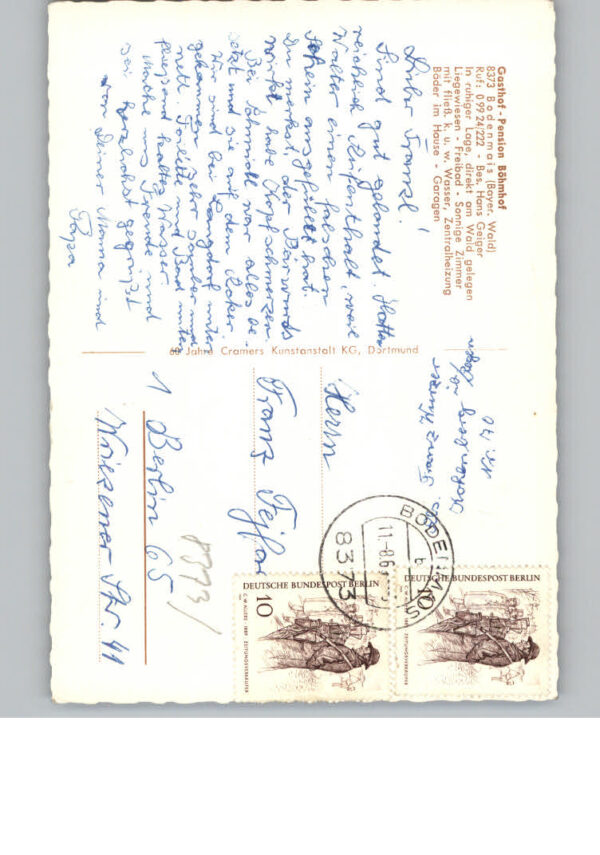 Gasthof-Pension Böhmhof
8373 Bodenmais (Bayer. Wald)
Ruf: 0 99 24/222 - Bes. Hans Geiger
In ruhiger Lage, direkt am Wald gelegen
Liegewiesen - Freibad - Sonnige Zimmer
mit fließ. k. u. w. Wasser, Zentralheizung
Bäder im Hause - Garagen
Lieber Franzl!
Sind gut gelandet. Hatten
reichlich Aufenthalt, weil
Walter einen falschen
Schein ausgefüllt hat.
Du merkst, der Bärwurz
wirkt, habe Kopfschmerzen.
Bei Schmidt war alles be-
setzt und sie auf dem Acker.
Wir sind bei Langdorf unter-
gekommen. Sehr sauber und
nett. Toilette und Bad unten
fliessend kaltes Wasser.
Mache uns Freude und
sei herzlichst gegrüßt
von Deiner Mama und
Papa
60 Jahre Cramers Kunstanstalt KG, Dortmund
Herrn
Franz Fejfar
1 Berlin 65
Wriezener Str. 41
8373/
BODENMAIS
b
11.-8.6
8373
DEUTSCHE BUNDESPOST BERLIN
10
C. W. ALLERS 1889 ZEITUNGSVERKÄUFER
DEUTSCHE BUNDESPOST BERLIN
10
C. W. ALLERS 1889 ZEITUNGSVERKÄUFER